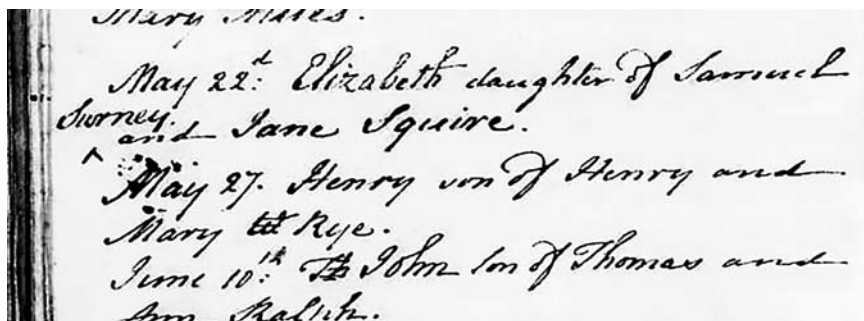 Mary Miles.
May 22d: Elizabeth daughter of Samuel
Surney.
and Jane Squire.
^
May 27. Henry son of Henry and
Mary Rye.
June 10th: Th John son of Thomas and
Ann Ralph.